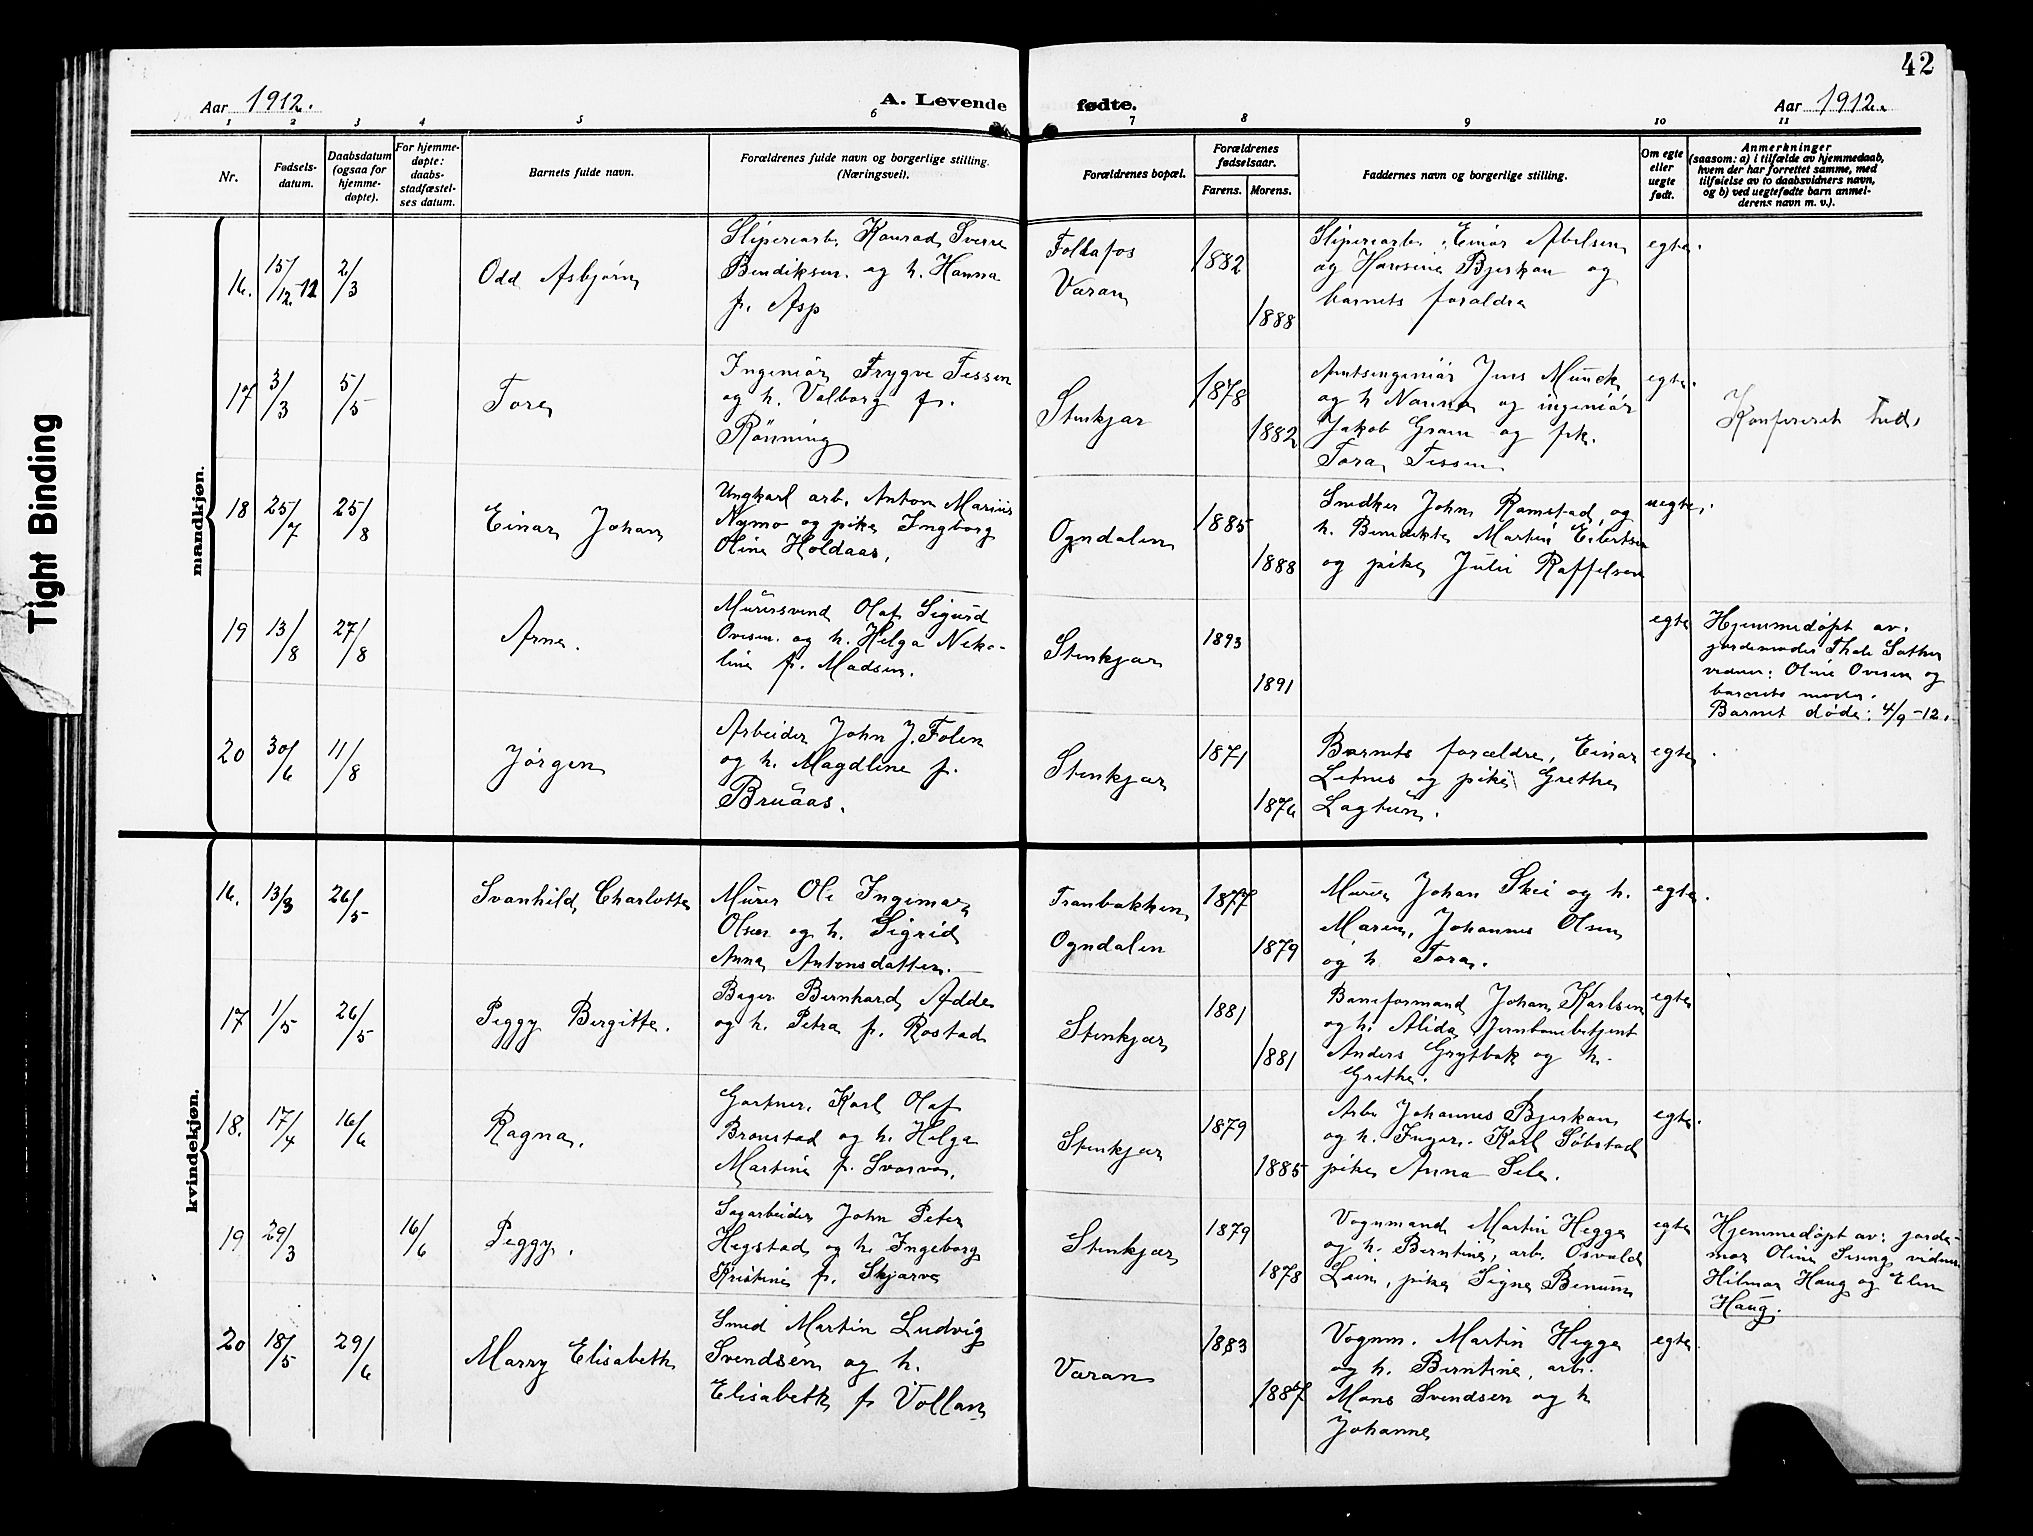 42
Aar 1912.
A. Levende fødte.
Aar 1912.
1 2 3 4 5 6 7 8 9 10 11
Nr.
Fødsels-
datum.
Daabsdatum
(ogsaa for
hjemme-
døpte).
For hjemme-
døpte:
daabs-
stadfæstel-
ses datum.
Barnets fulde navn.
Forældrenes fulde navn og borgerlige stilling.
(Næringsvei).
Forældrenes bopæl.
Forældrenes
fødselsaar.
Farens. Morens.
Faddernes navn og borgerlige stilling.
Om egte
eller
uegte
født.
Anmerkninger
(saasom: a) i tilfælde av hjemmedaab,
hvem der har forrettet samme, med
tilføielse av to daabsvidners navn,
og b) ved uegtefødte barn anmel-
derens navn m. v.).
Tight Binding
mandkjøn.
16. 15/12 12 2/3 Odd Asbjørn
Sliperiarb. Konrad Sverre
Bendiksen og h. Hanna
f. Asp
Folkafos
Væran
1882
1888
Sliperiarb. Einar Abelsen
og Hansine Bjerkan og
barnets foraldre
egte.
17 3/3 5/5 Tore
Ingeniör Trygve Tessem
og h. Valborg f.
Rönning
Stenkjær
1878
1882
Amtsingeniör Jens Munck
og h Nanna og ingeniör
Jakob Gram og frk.
Tora Tessem
egte.
Konfereret Tud.
18 25/7 25/8 Einar Johan
Ungkarl arb. Anton Marius
Nymo og pike Ingborg
Oline Holdaas.
Ogndalen
1885
1888
Snedker John Ramstad og
h. Benedikte Martin Eilertsen
og pike Julie Raffelsen
uegte.
19 13/8 27/8 Arne.
Murersvend Olaf Sigurd
Ovesen og h. Helga Neko-
line f. Madsen.
Stenkjær
1893
1891
egte
Hjemmedøpt av.
jordemoder Thale Sather
vidner: Oline Ovesen og
barnets moder.
Barnet døde: 4/9-12.
20 30/6 11/8 Jørgen
Arbeider John J. Folen
og h. Magdline f.
Bruaas.
Stenkjær
1871
1876
Barnets forældre, Einar
Letnes og pike Grethe
Lagtun.
egte.
kvindekjøn.
16. 13/3 26/5 Svanhild Charlotte
Murer Ole Ingemar
Olsen og h. Sigrid
Anna Antonsdatter.
Tranbakken
Ogndalen
1877
1879
Murer Johan Skei og h.
Maren, Johannes Olsen
og h. Tora.
egte.
17 1/5 26/5 Peggy Bergitte.
Bager Bernhard Adde
og h. Petra f. Rostad
Stenkjær
1881
1881
Baneformand Johan Karlsen
og h. Alida Jernbanebetjent
Anders Grytbak og h.
Grethe.
egte
18. 17/4 16/6 Ragna.
Gartner Karl Olaf
Brandstad og h. Helga
Martine f. Svarva.
Stenkjær
1879
1885
Arb. Johannes Bjerkan
og h. Inger. Karl Søbstad
pike Anna Sele.
egte.
19 29/3 16/6 Peggy.
Sagarbeider John Peter
Hegstad og h. Ingeborg
Kristine f. Skjerve
Stenkjær
1879
1878
Vognmand Martin Hegge
og h. Berntine, arb. Osvald
Lein, pike Signe Benum
egte
Hjemmedøpt av: jorde-
mor Oline Sesing vidner
Hilmar Haug og Elen
Haug.
20 18/5 29/6 Marry Elisabeth
Smed Martin Ludvig
Svendsen og h.
Elisabeth f Vollan
Væran
1883
1887
Vognm. Martin Hegge
og h. Berntine, arb.
Mons Svendsen og h
Johanne
egte.